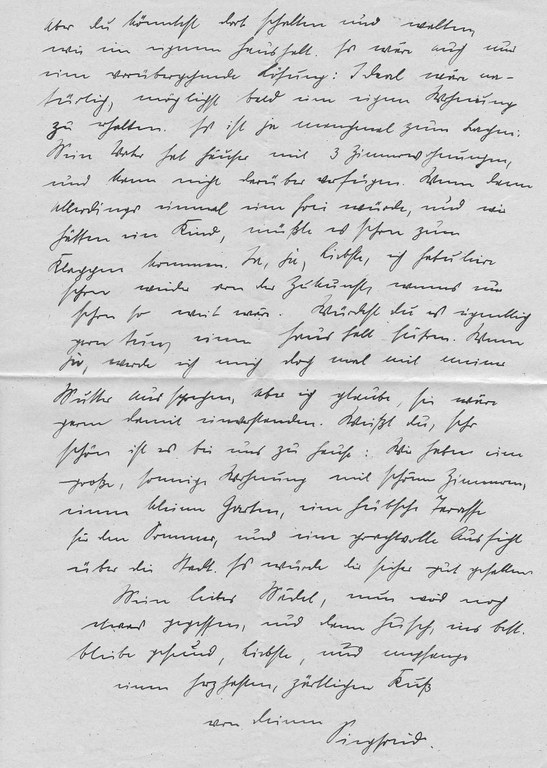 aber du könntest dort schalten und walten,
wie im eignen Haushalt. Es wäre auch nur
eine vorübergehende Lösung: Ideal wäre na-
türlich, möglichst bald eine eigne Wohnung
zu erhalten. Es ist ja manchmal zum Lachen:
Mein Vater hat Häuser mit 3 Zimmerwohnungen,
und kann nicht darüber verfügen. Wenn dann
allerdings einmal eine frei würde, und wir
hätten ein Kind, müßte es schon zum
Klappen kommen. Ja, ja, Liebste, ich fabuliere
schon wieder von der Zukunft, wenns nur
schon so weit wär. Würdest du es eigentlich
gern tun, einen Haushalt führen. Wenn
ja, werde ich mich doch mal mit meiner
Mutter aussprechen, aber ich glaube, sie wäre
gern damit einverstanden. Weißt du, sehr
schön ist es bei uns zu Hause: Wir haben eine
große, sonnige Wohnung mit schönen Zimmern,
einen kleinen Garten, eine hübsche Terasse
für den Sommer, und eine prachtvolle Aussicht
über die Stadt. Es würde dir sicher gut gefallen
Mein liebes Mädel, nun wird noch
etwas gegessen, und dann husch, ins Bett.
bleibe gesund, Liebste, und empfange
einen herzhaften, zärtlichen Kuß
von deinem
Siegfried.